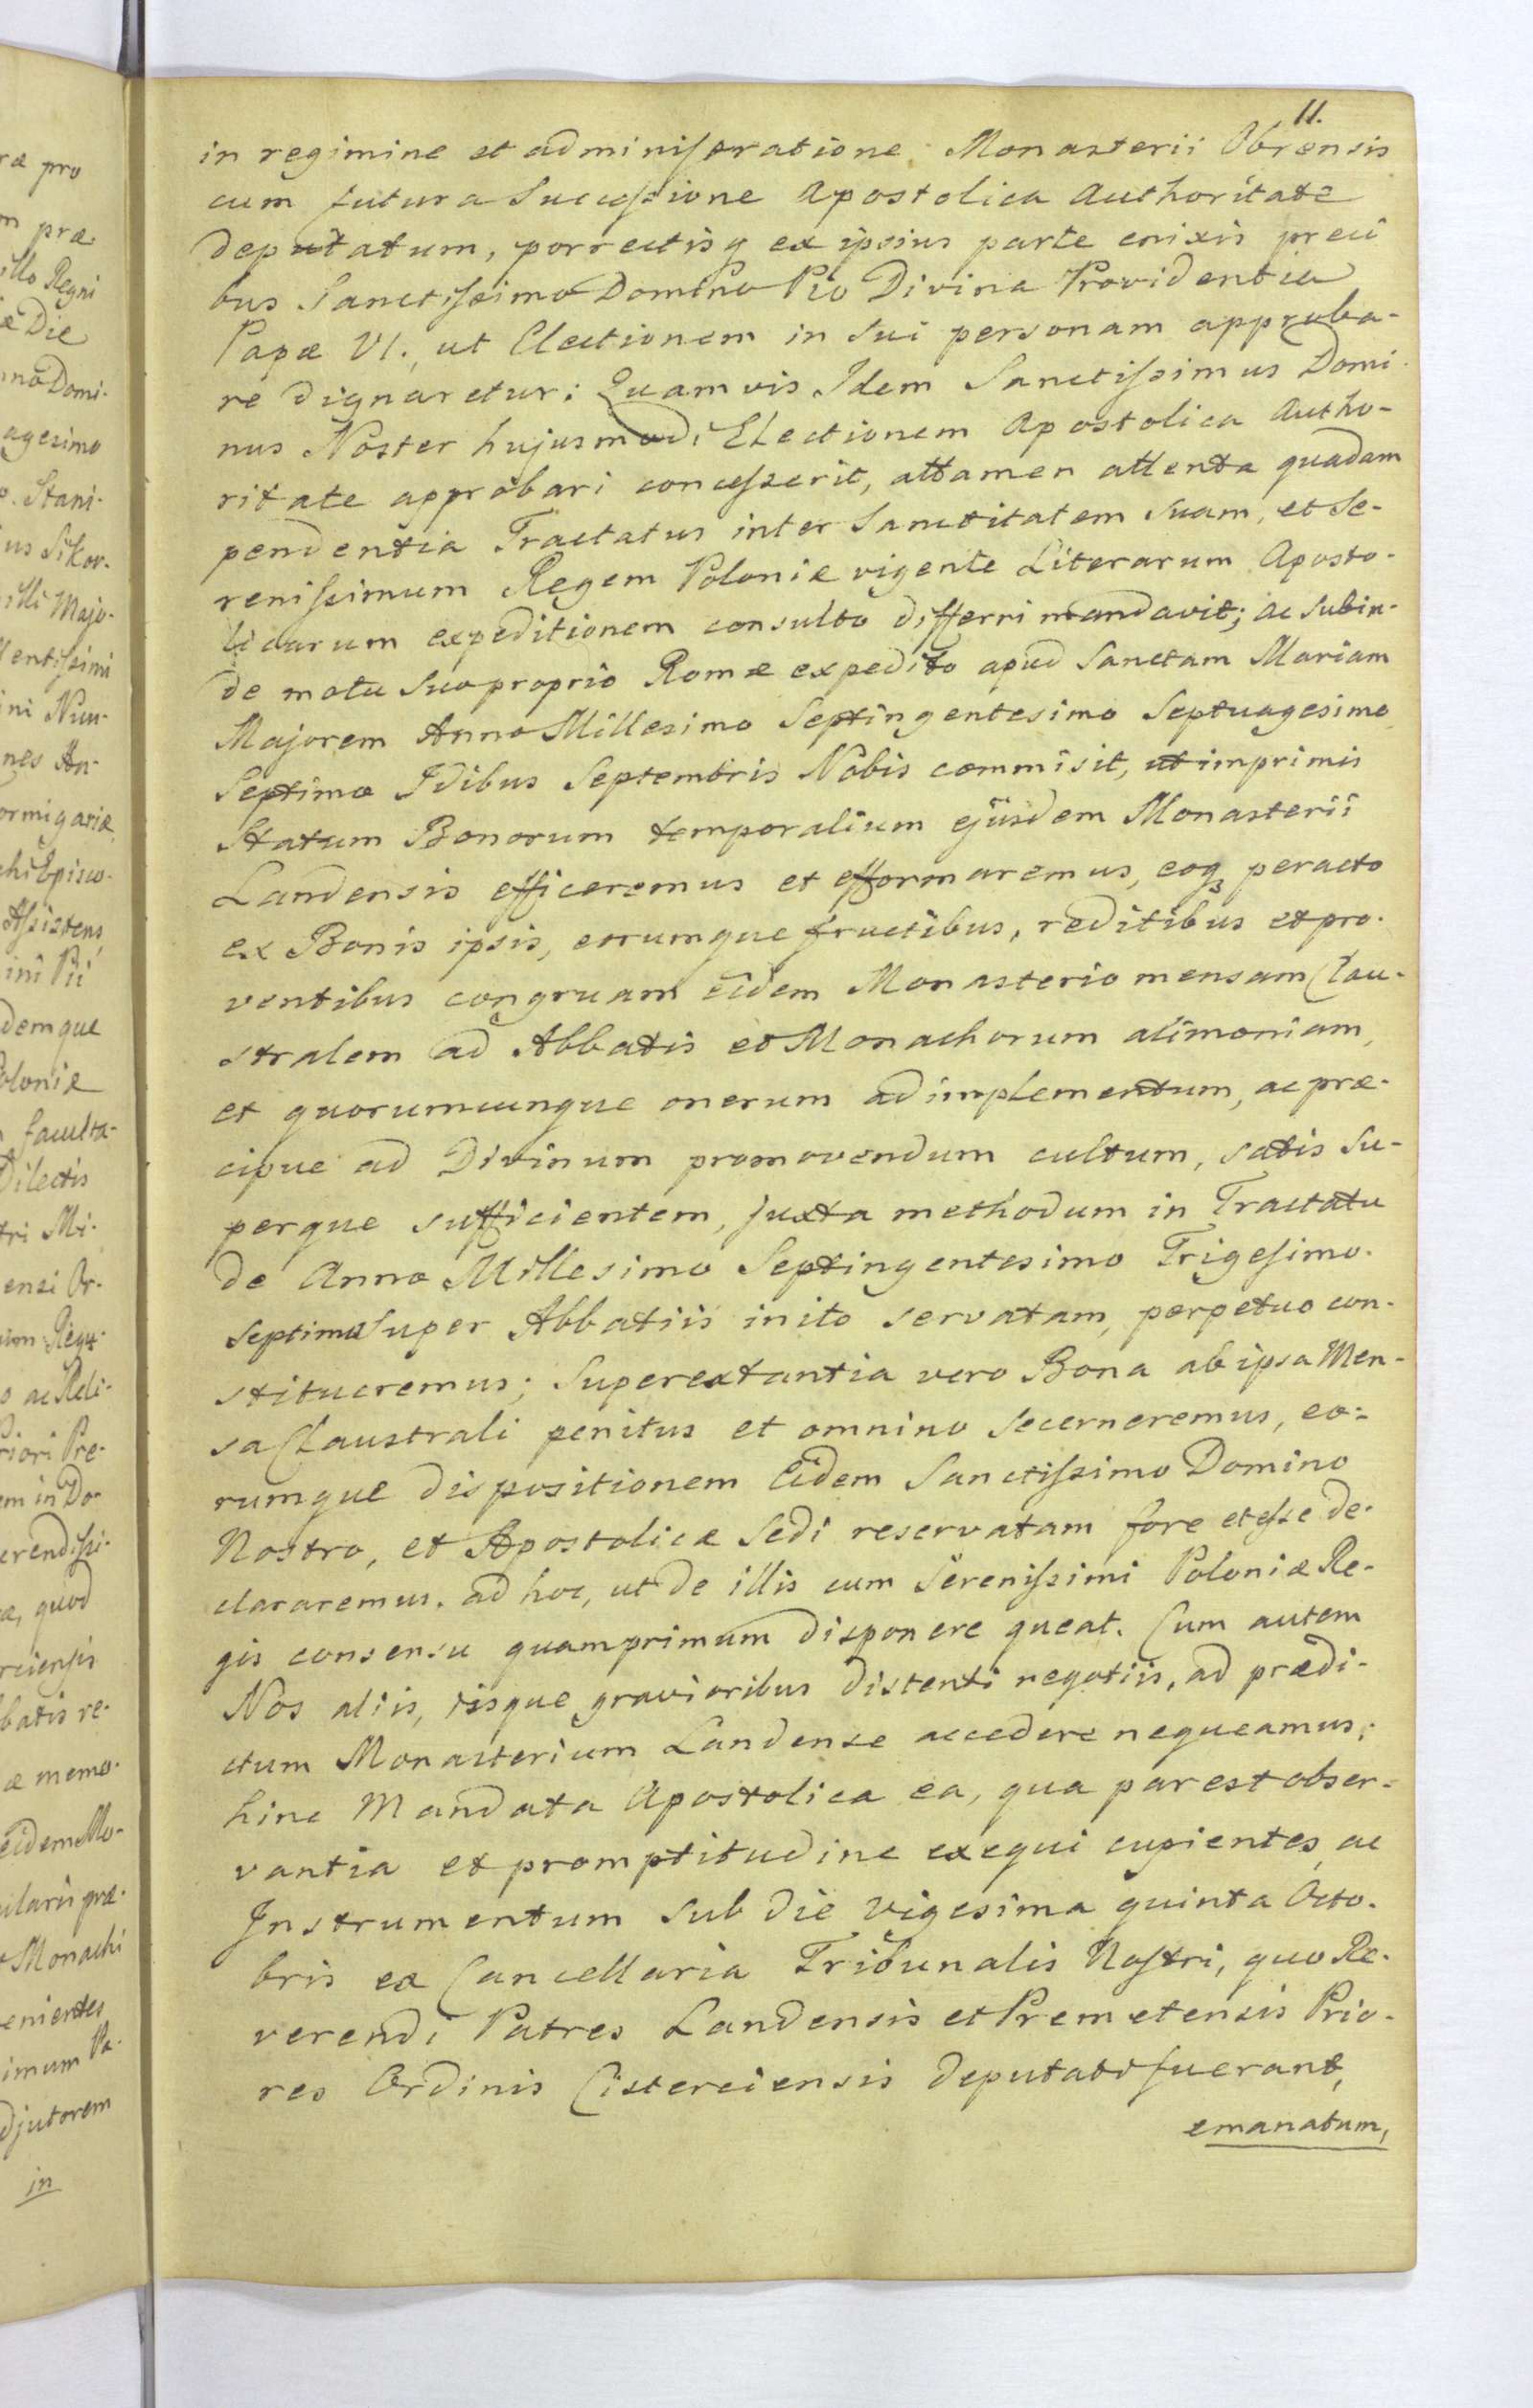 11.
in regimine et administratione Monasterii Obrensis
cum futura Successione Apostolica Authoritate
deputatum, porrectisq ex ipsius parte enixis preci
bus Sanctissimo Domino Pio Divina Providentia
Papæ VI., ut Electionem in sui personam approba-
re dignaretur: Quamvis Idem Sanctissimus Domi-
nus Noster hujusmodi Electionem Apostolica Autho-
ritate approbari concesserit, attamen attenta quadam
pendentia Tractatus inter Sanctitatem Suam, et Se-
renissimum Regem Poloniæ vigente Literarum Aposto-
licarum expeditionem consulto differri mandavit; ac subin-
de motu suo proprio Romæ expedito apud Sanctam Mariam
Majorem Anno Millesimo Septingentesimo Septuagesimo
Septimo Idibus Septembris Nobis commisit, ut imprimis
Statum Bonorum temporalium ejusdem Monasterii
Landensis efficeremus et efformaremus, eoq peracto
ex Bonis ipsis, eorumque fructibus, reditibus et pro-
ventibus congruam eidem Monasterio mensam Clau-
stralem ad Abbatis et Monachorum alimoniam,
et quorumcunque onerum adimplementum, ac præ-
cipue ad Divinum promovendum cultum, satis su-
perque sufficientem, juxta methodum in Tractatu
de Anno Millesimo Septingentesimo Trigesimo
septimo super Abbatiis inito servatam, perpetuo con-
stitueremus; Superextantia vero Bona ab ipsa Men-
sa Claustrali penitus et omnino secerneremus, eo-
rumque dispositionem Eidem Sanctissimo Domino
Nostro, et Apostolicæ Sedi reservatam fore et esse de-
clararemus. ad hoc, ut de illis cum Serenissimi Poloniæ Re-
gis consensu quamprimum disponere queat. Cum autem
Nos aliis, iisque gravioribus distenti negotiis, ad prædi-
ctum Monasterium Landense accedere nequeamus;
hinc Mandata Apostolica ea, qua par est obser-
vantia et promptitudine exequi cupientes, ac
Instrumentum sub die vigesima quinta Octo-
bris ex Cancellaria Tribunalis Nostri, quo Re-
verendi Patres Landensis et Premetensis Prio-
res Ordinis Cisterciensis deputati fuerant,
emanatum,